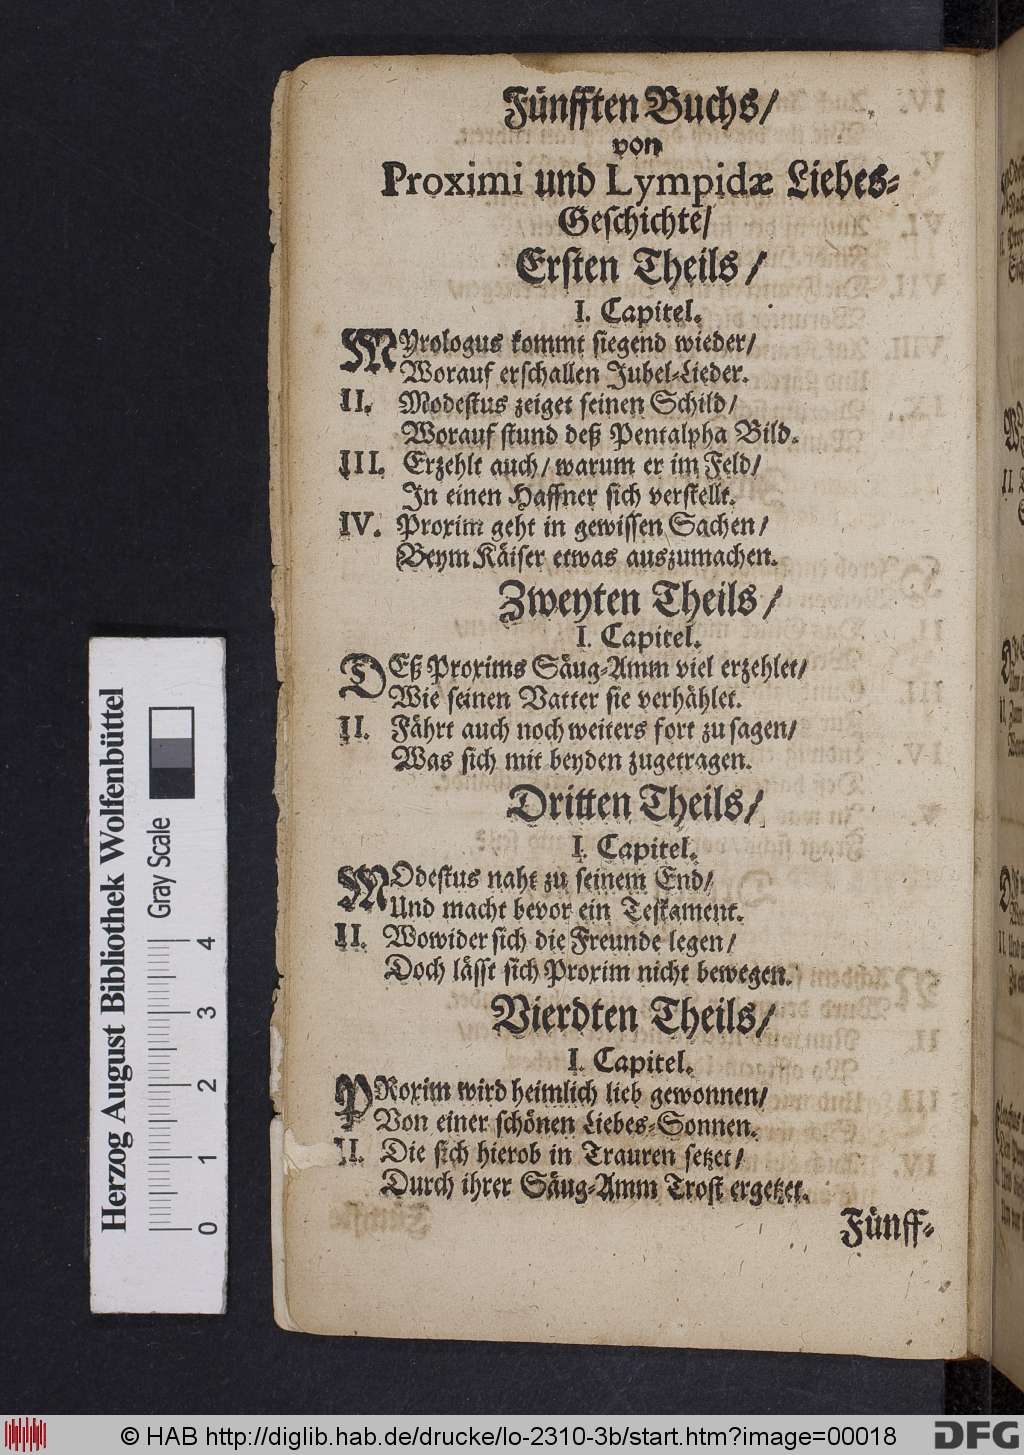 Fünfften Buchs/
von
Proximi und Lympidæ Liebes-
Geschichte/
Ersten Theils/
I. Capitel.
MYrologus kommt siegend wieder/
Worauf erschallen Jubel-Lieder.
II. Modestus zeiget seinen Schild/
Worauf stund deß Pentalpha Bild.
III. Erzehlt auch/ warum er im Feld/
In einen Haffner sich verstellt.
IV. Proxim geht in gewissen Sachen/
Beym Käiser etwas auszumachen.
Zweyten Theils/
I. Capitel.
DEß Proxims Säug-Amm viel erzehlet/
Wie seinen Vatter sie verhählet.
II. Fährt auch noch weiters fort zu sagen/
Was sich mit beyden zugetragen.
Dritten Theils/
I. Capitel.
MOdestus naht zu seinem End/
Und macht bevor ein Testament.
II. Wowider sich die Freunde legen/
Doch lässt sich Proxim nicht bewegen.
Vierdten Theils/
I. Capitel.
PRoxim wird heimlich lieb gewonnen/
Von einer schönen Liebes-Sonnen.
II. Die sich hierob in Trauren setzet/
Durch ihrer Säug-Amm Trost ergetzet.
Fünff-
Herzog August Bibliothek Wolfenbüttel
Gray Scale
0 1 2 3 4
© HAB http://diglib.hab.de/drucke/lo-2310-3b/start.htm?image=00018
DFG